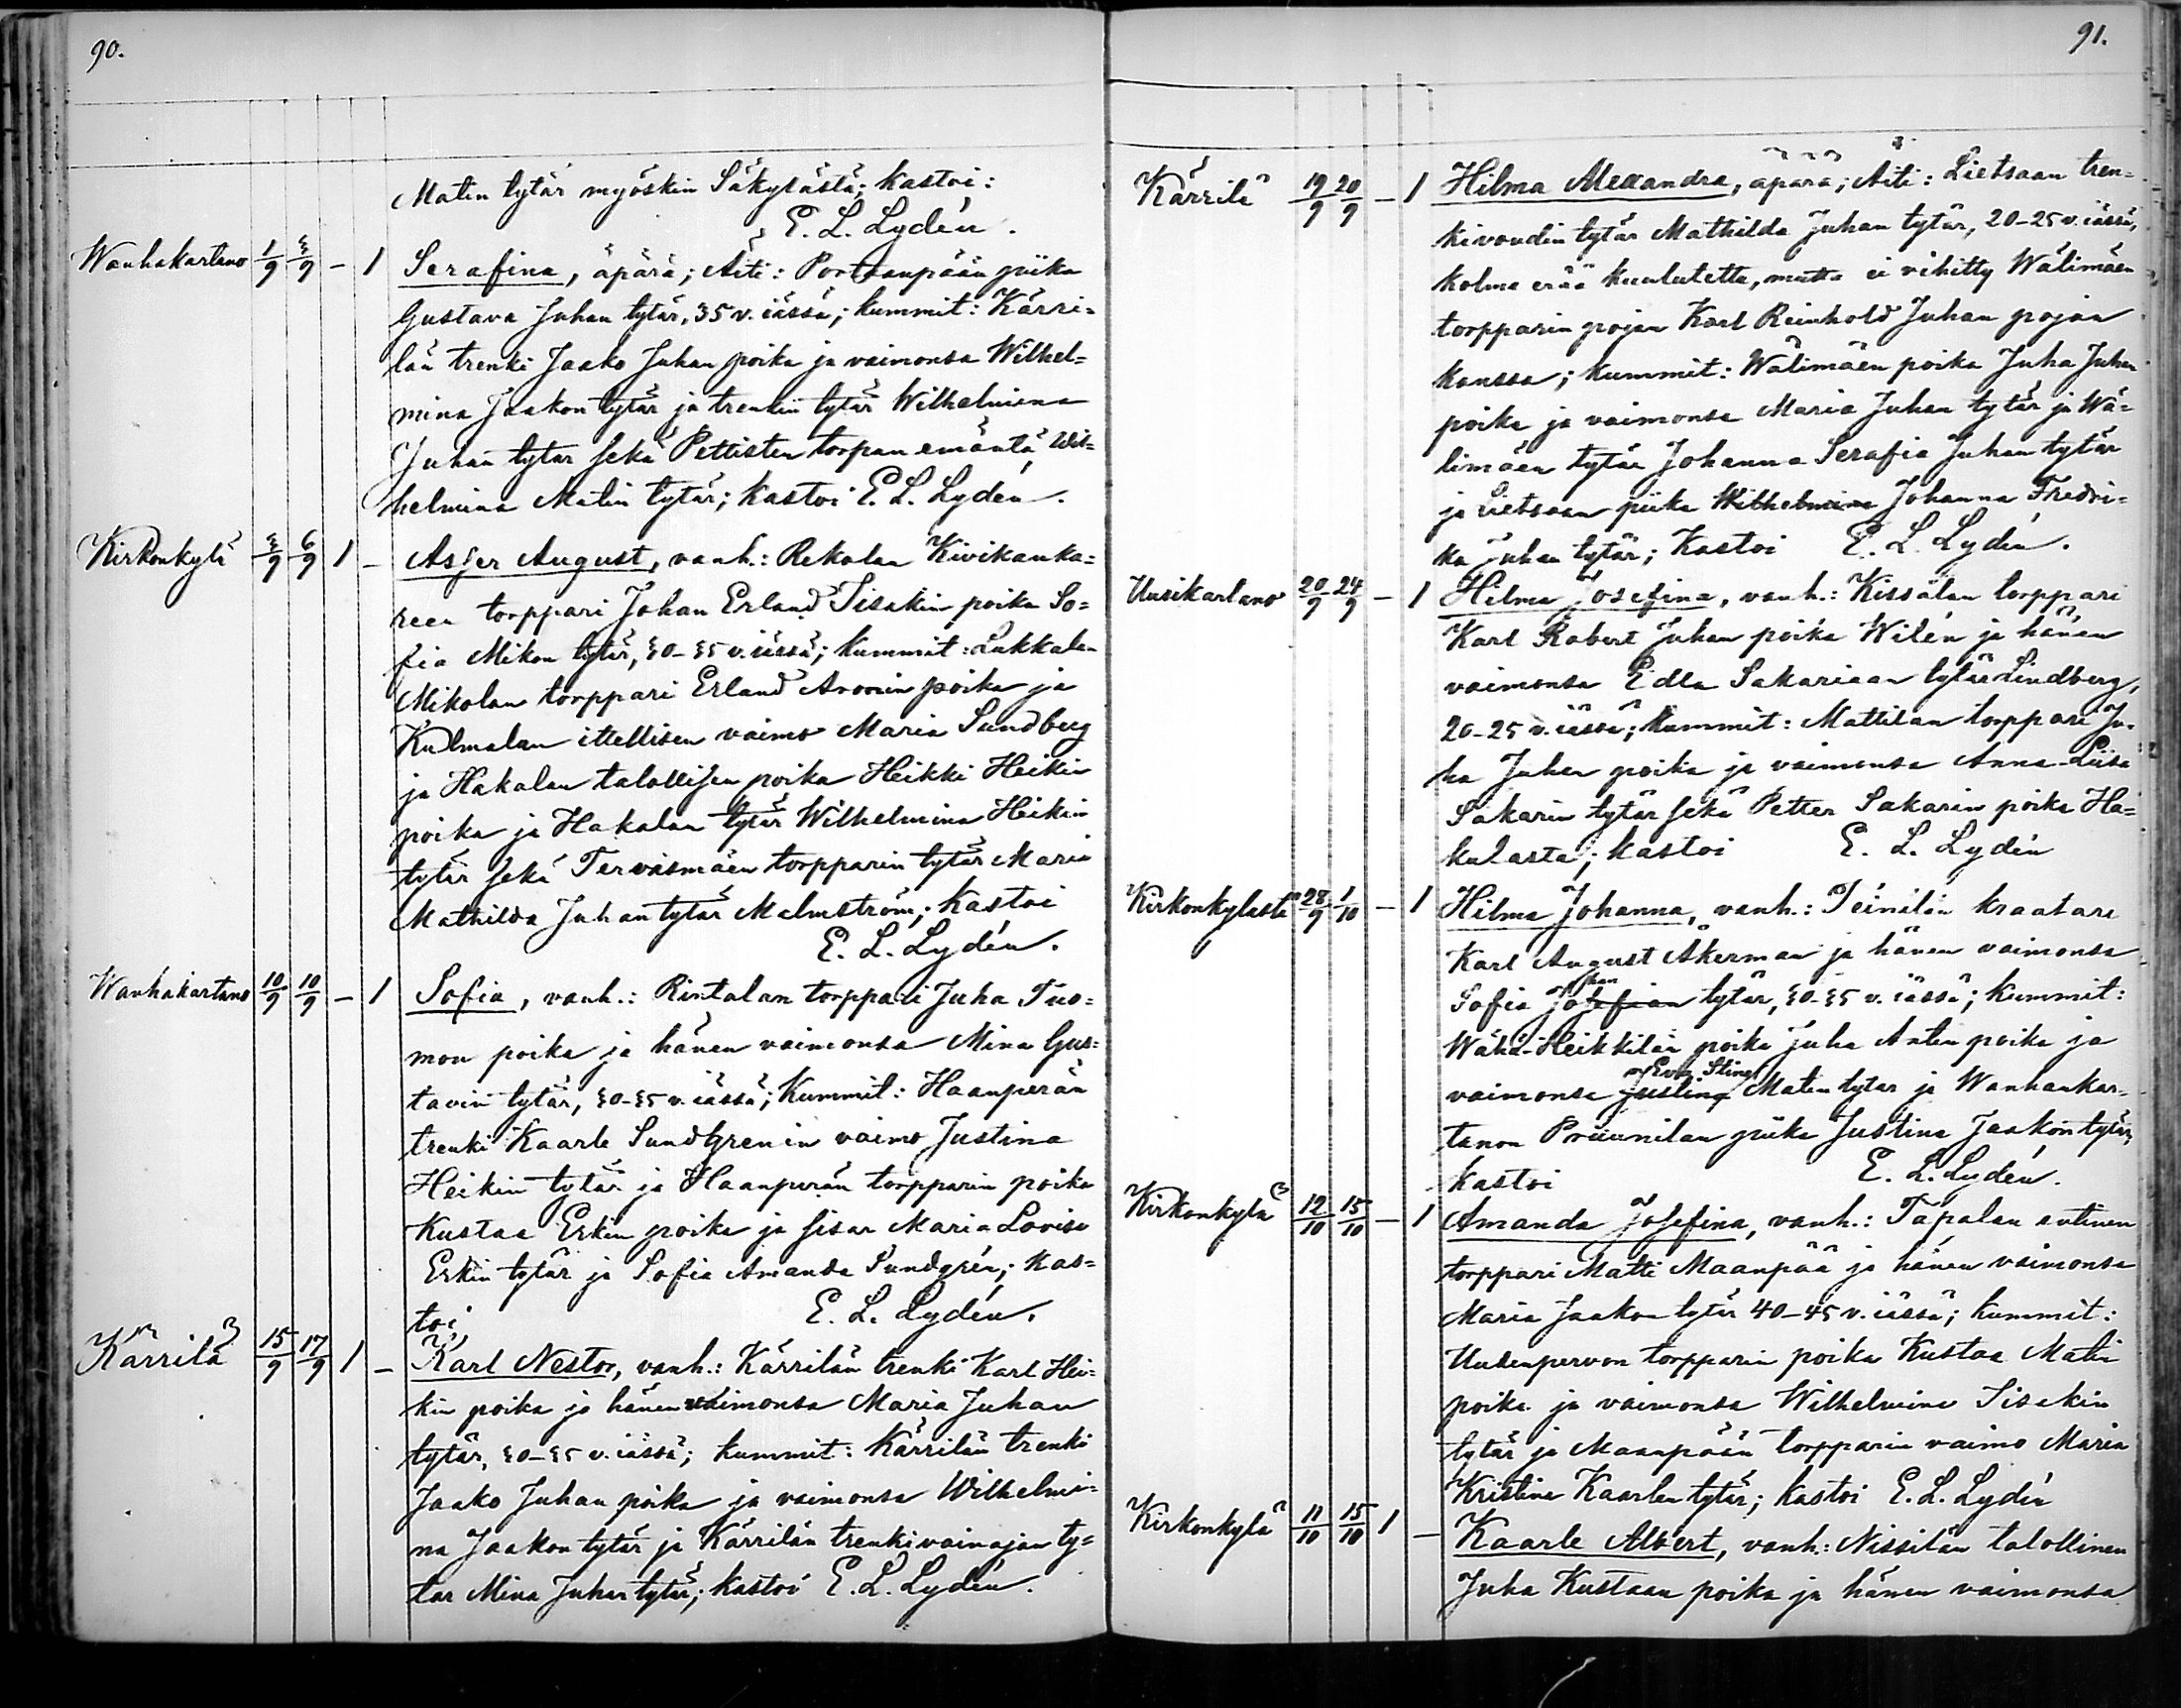 90.
Matin tytär myöskin Säkylästä; kastoi:
E. L. Lydén.
Wanhakartano 1/9 3/9 – 1 Serafina, äpärä; Äiti: Portaanpään piika
Gustava Juhan tytär, 35 v. iässä; kummit: Kärri=
län trenki Jaako Juhan poika ja vaimonsa Wilhel=
mina Jaakon tytär ja trenkin tytär Wilhelmina
Juhan tytär sekä Pettisten torpan emäntä Wil=
helmina Matin tytär; kastoi E. L. Lydén.
Kirkonkylä 3/9 6/9 1 – Asser August, vanh.: Rekolan Kivikauka=
reen torppari Johan Erland Iisakin poika So=
fia Mikon tytär, 30–35 v. iässä; kummit: Lukkalan
Mikolan torppari Erland Aronin poika ja
Kulmalan itellisen vaimo Maria Sundberg
ja Hakalan talollisen poika Heikki Heikin
poika ja Hakalan tytär Wilhelmina Heikin
tytär sekä Tervasmäen torpparin tytär Maria
Mathilda Juhan tytär Malmström; Kastoi
E. L. Lydén.
Wanhakartano 10/9 10/9 – 1 Sofia, vanh.: Rintalan torppari Juha Tuo=
mon poika ja hänen vaimonsa Mina Gus=
tavin tytär, 30–35 v. iässä; Kummit: Haanperän
trenki Kaarle Sundgrenin vaimo Justina
Heikin tytär ja Haanperän torpparin poika
Kustaa Erkin poika ja sisar Maria Lovisa
Erkin tytär ja Sofia Amanda Sundgrén; Kas=
toi E. L. Lydén.
Kärrilä 15/9 17/9 1 – Karl Nestor, vanh.: Kärrilän trenki Karl Hei=
kin poika ja hänen vaimonsa Maria Juhan
tytär, 30–35 v. iässä; kummit: Kärrilän trenki
Jaako Juhan poika ja vaimonsa Wilhelmi=
na Jaakon tytär ja Kärrilän trenkivainajan ty=
tär Mina Juhan tytär; kastoi E. L. Lydén.
91.
Kärrilä 19/9 20/9 – 1 Hilma Alexandra, äpärä; Äiti: Lietsaan tren=
kivoudin tytär Mathilda Juhan tytär, 20–25 v. iässä,
kolme erää kuulutettu, mutta ei vihitty Wälimäen
torpparin pojan Karl Reinhold Juhan pojan
kanssa; kummit: Wälimäen poika Juha Juhan
poika ja vaimonsa Maria Juhan tytär ja Wä=
limäen tytär Johanna Serafia Juhan tytär
ja Lietsaan piika Wilhelmina Johanna Fredri=
ka Juhan tytär; Kastoi E. L. Lydén.
Uusikartano 20/9 24/9 – 1 Hilma Josefina, vanh.: Kissalan torppari
Karl Robert Juhan poika Wilén ja hänen
vaimonsa Edla Sakariaan tytär Lindberg,
20–25 v. iässä; kummit: Mattilan torppari Ju=
ha Juhan poika ja vaimonsa Anna-Liisa
Sakarin tytär sekä Petter Sakarin poika Ha=
kulasta; kastoi E. L. Lydén
Kirkonkylästä 28/9 1/10 – 1 Hilma Johanna, vanh.: Teinilän kraatari
Karl August Åkerman ja hänen vaimonsa
Sofia Josefian han tytär, 30–35 v. iässä; kummit:
Wähä-Heikkilän poika Juha Antin poika ja
vaimonsa Justina Eva Stina Matin tytär ja Wanhankar=
tanon Priiunilan piika Justina Jaakon tytär,
kastoi E. L. Lydén.
Kirkonkylä 12/10 15/10 – 1 Amanda Josefina, vanh.: Tapalan entinen
torppari Matti Maanpää ja hänen vaimonsa
Maria Jaakon tytär 40–45 v. iässä; kummit:
Uudenpervon torpparin poika Kustaa Matin
poika ja vaimonsa Wilhelmina Iisakin
tytär ja Maanpään torpparin vaimo Maria
Kristina Kaarlen tytär; kastoi E. L. Lydén
Kirkonkylä 11/10 15/10 1 – Kaarle Albert, vanh.: Nissilän talollinen
Juha Kustaan poika ja hänen vaimonsa